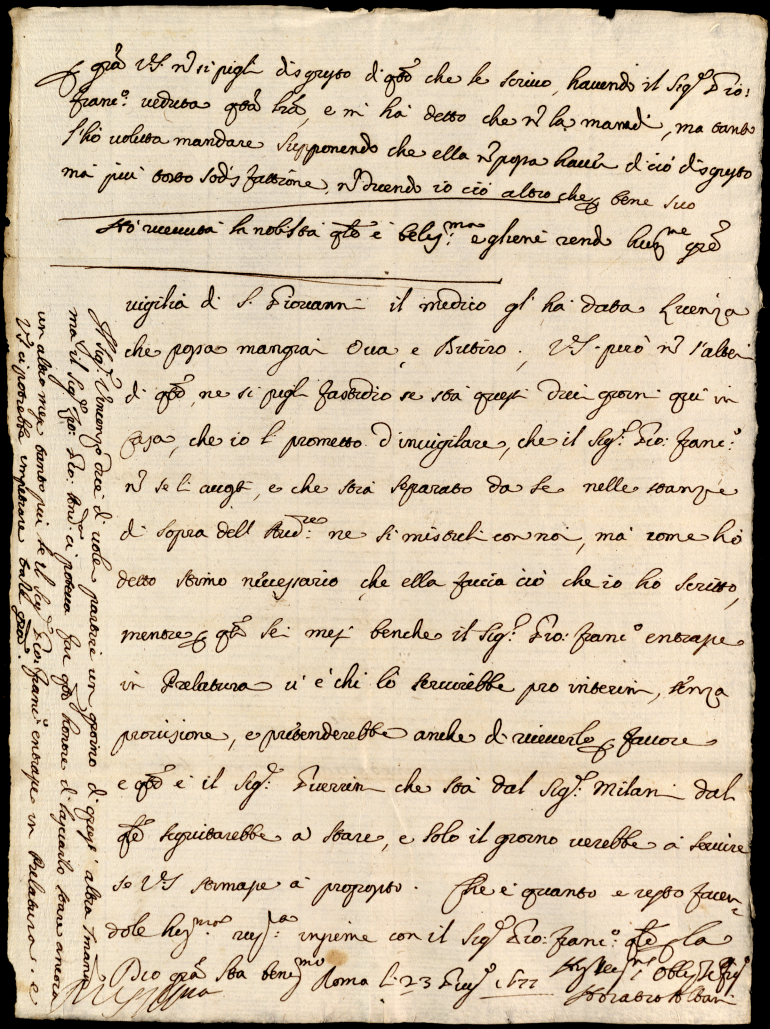 grã V.S. nõ si pigli disgusto di qto che le scrivo, havendo il Sigr Gio:
Franco veduta qta lrã, e mi ha detto che nõ la mandi, ma tanto
l'hò voluta mandare supponendo che ella nõ possa haver di ciò disgusto
mà più tosto sodisfattione, nõ dicendo io ciò altro che p bene suo
Hò ricevuta la nobiltà qle è bellissma e gliene rendo humme grẽ
vigilia di S. Giovanni il medico gl' ha data licenza
che possa mangiar Ova, e Butiro; V.S. però nõ s'alteri
di qto, ne si pigli fastidio se stà questi dieci giorni qui in
Casa, che io li prometto d'invigilare, che il Sigr Gio: Franco
nõ se li accosti, e che starà separato da se nelle stanze
di sopra dell' ne si mischi con noi, mà come hò
detto stimo necessario che ella faccia ciò che io ho scritto,
mentre p qti sei mesi benche il Sigr Gio: Franco entrasse
in Prelatura vi è chi lo servirebbe pro interim, senza
provisione, e pretenderebbe anche di riceverlo p favore
e qto è il Sigr Guerrini che stà dal Sigr Milani dal
qle seguitarebbe a stare, e solo il giorno verebbe à servire
se V.S. stimasse à proposito. Che è quanto e resto facen-
dole insieme con il Sigr Gio: Franco qle p la
Dio grã sta benismo Roma li 23 Giugo 1677
Horatio Albani
Al Sigr Vincenzo dice di voler partire un giorno di quest' altra
ma il Sigr Gio: ci poteva far qto honore di lasciarlo stare ancora
un altro mese tanto più se il Sigr Gio: Franco entrasse in Prelatura. e
V.S. ci potrebbe impetrare tale grã.